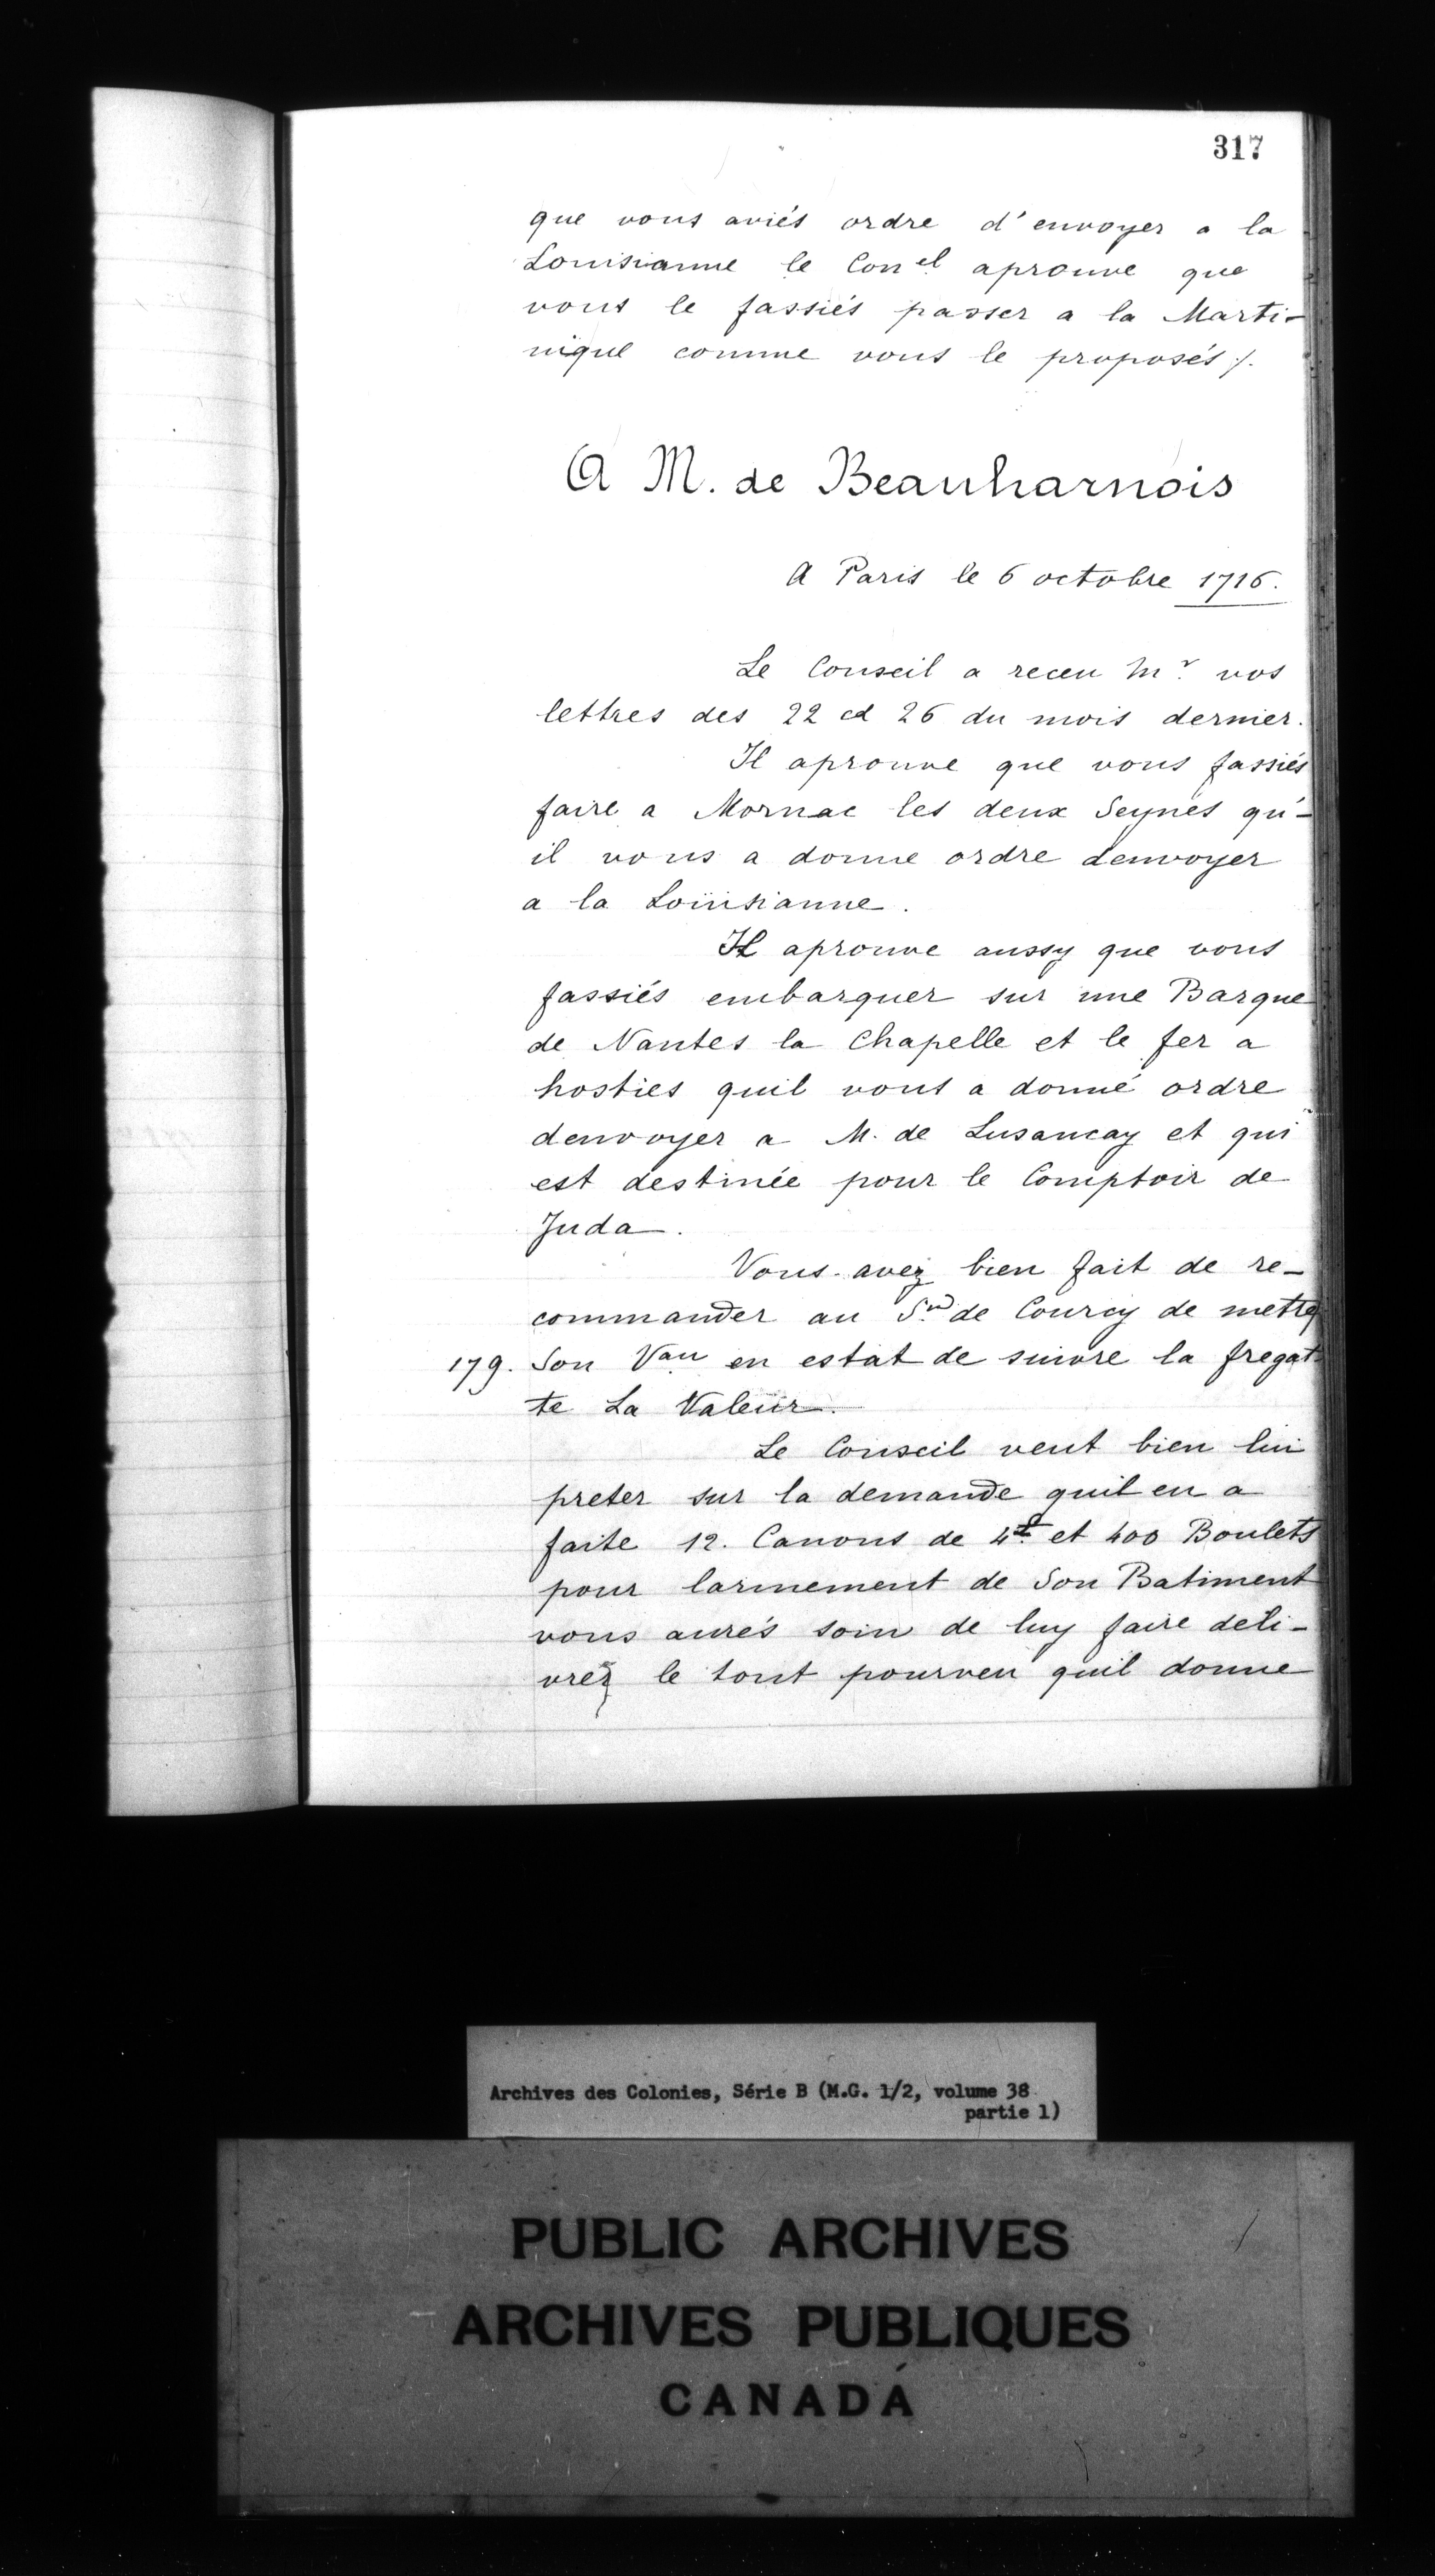 317
que vous aviés ordre d'envoyer a la
Louisianne le Con.el aprouve que
vous le fassiés passer a la Marti-
nique comme vous le proposés ./.
A M. de Beauharnois
A Paris le 6 octobre 1716.
Le Conseil a receu Mr. vos
lettres des 22 et 26 du mois dernier.
Il aprouve que vous fassiés
faire a Mornac les deux Seynes qu'-
il vous a donne ordre denvoyer
a la Loüisianne.
Il aprouve aussy que vous
fassiés embarquer sur une Barque
de Nantes la Chapelle et le fer a
hosties quil vous a donné ordre
denvoyer a M. de Lusancay et qui
est destinée pour le Comptoir de
Juda.
Vous avez bien fait de re-
commander au Sr. de Courcy de mettre
179. Son Vau en estat de suivre la fregat-
te La Valeur.
Le Conseil veut bien lui
preter sur la demande quil en a
faite 12. Canons de 4 et 400 Boulets
pour larmement de Son Batiment
vous aurés soin de luy faire deli-
vrer le tout pourveu quil donne
Archives des Colonies, Série B (M.G. 1/2, volume 38
partie 1)
PUBLIC ARCHIVES
ARCHIVES PUBLIQUES
CANADA